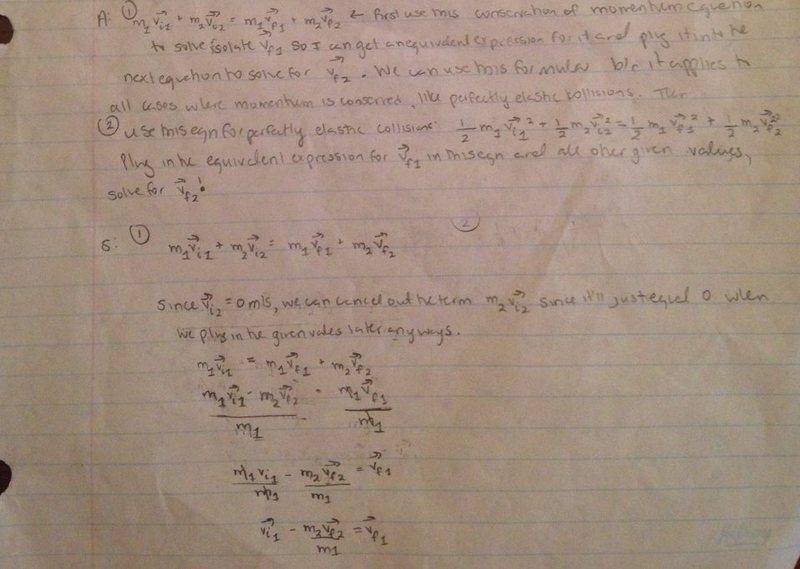 A: ① m₁v⃗ᵢ₁ + m₂v⃗ᵢ₂ = m₁v⃗f₁ + m₂v⃗f₂ ← first use this conservation of momentum equation
to solve isolate v⃗f₁ so I can get an equivalent expression for it and plug it into the
next equation to solve for v⃗f₂. We can use this formula b/c it applies to
all cases where momentum is conserved, like perfectly elastic collisions. Then
② use this eqn for perfectly elastic collisions: ½ m₁v⃗ᵢ₁² + ½ m₂v⃗ᵢ₂² = ½ m₁v⃗f₁² + ½ m₂v⃗f₂²
Plug in the equivalent expression for v⃗f₁ in this eqn and all other given values,
solve for v⃗f₂!
②
S: ① m₁v⃗ᵢ₁ + m₂v⃗ᵢ₂ = m₁v⃗f₁ + m₂v⃗f₂
Since v⃗ᵢ₂ = 0 m/s, we can cancel out the term m₂v⃗ᵢ₂ since it'll just equal 0 when
we plug in the given vales later anyways.
m₁v⃗ᵢ₁ = m₁v⃗f₁ + m₂v⃗f₂
(m₁v⃗ᵢ₁ - m₂v⃗f₂)/m₁ = m₁v⃗f₁/m₁
m₁vᵢ₁/m₁ - m₂v⃗f₂/m₁ = v⃗f₁
v⃗ᵢ₁ - m₂v⃗f₂/m₁ = v⃗f₁